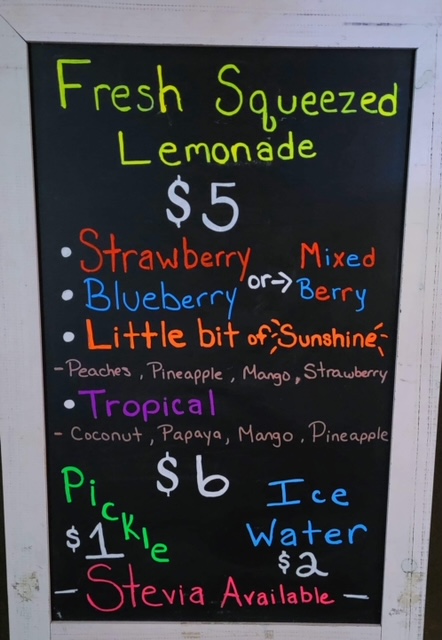 Fresh Squeezed
Lemonade
$5
• Strawberry
• Blueberry
or→ Mixed
Berry
• Little bit of Sunshine
- Peaches, Pineapple, Mango, Strawberry
• Tropical
- Coconut, Papaya, Mango, Pineapple
$6
Pickle
$1
Ice
Water
$2
- Stevia Available -